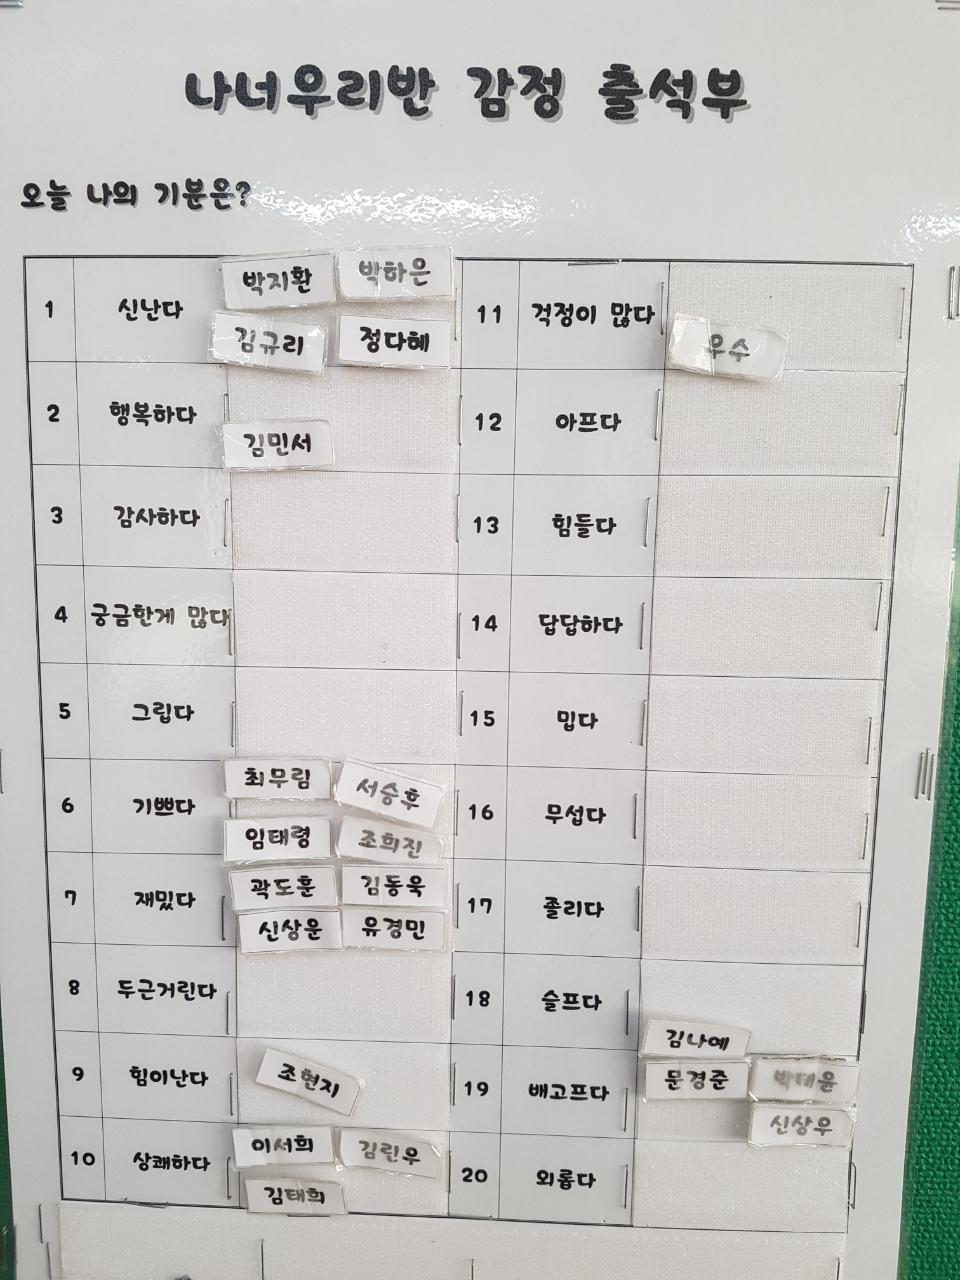 나너우리반 감정 출석부
오늘 나의 기분은?
1 신난다 박지환 박하은
김규리 정다혜
2 행복하다 김민서
3 감사하다
4 궁금한게 많다
5 그립다
6 기쁘다 최무림 서승후
임태령 조희진
7 재밌다 곽도훈 김동욱
신상운 유경민
8 두근거린다
9 힘이난다 조현지
10 상쾌하다 이서희 김린우
김태희
11 걱정이 많다 우수
12 아프다
13 힘들다
14 답답하다
15 밉다
16 무섭다
17 졸리다
18 슬프다 김나예
19 배고프다 문경준
신상우
20 외롭다